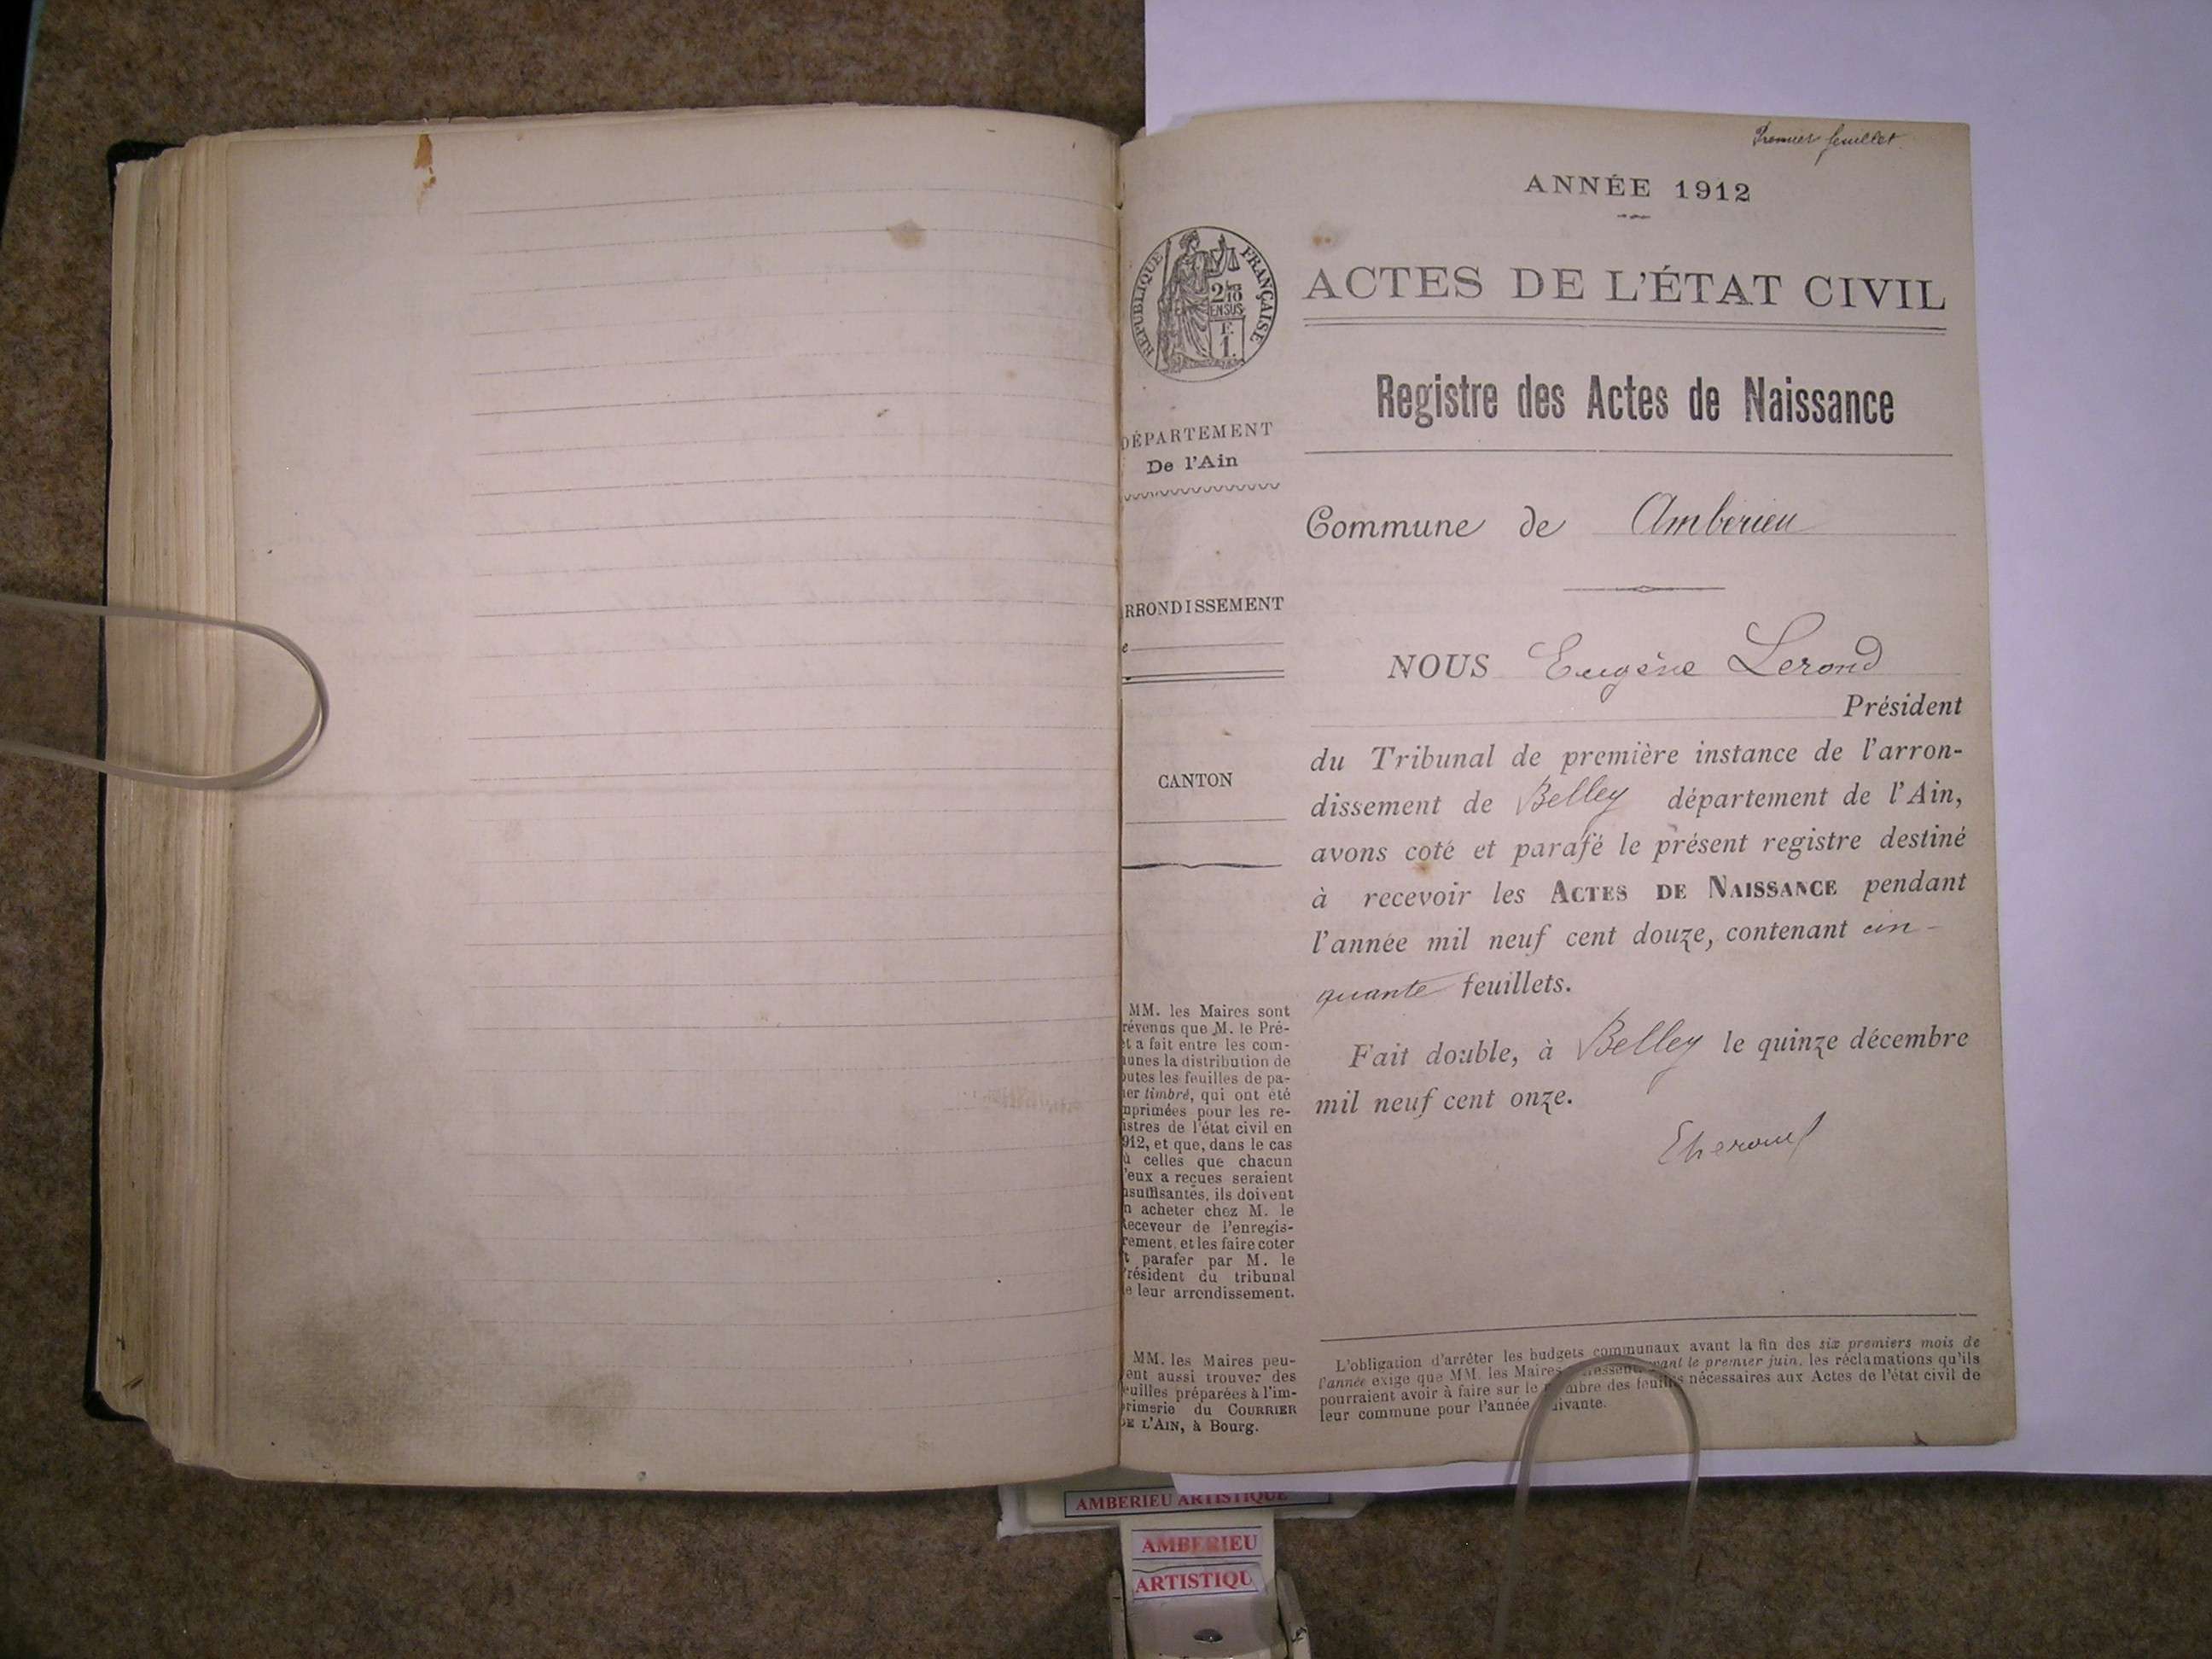 Premier feuillet.
ANNÉE 1912
RÉPUBLIQUE FRANÇAISE
2/10
EN SUS
1.
ACTES DE L'ÉTAT CIVIL
Registre des Actes de Naissance
DÉPARTEMENT
De l'Ain
Commune de Amberieu
RRONDISSEMENT
e
NOUS Eugène Lerond
Président
du Tribunal de première instance de l'arron-
dissement de Belley département de l'Ain,
CANTON
avons coté et parafé le présent registre destiné
à recevoir les ACTES DE NAISSANCE pendant
l'année mil neuf cent douze, contenant cin-
quante feuillets.
Fait double, à Belley le quinze décembre
mil neuf cent onze.
MM. les Maires sont
révenus que M. le Pré-
et a fait entre les com-
unes la distribution de
outes les feuilles de pa-
ier timbré, qui ont été
mprimées pour les re-
istres de l'état civil en
912, et que, dans le cas
ù celles que chacun
'eux a reçues seraient
nsuffisantes, ils doivent
n acheter chez M. le
Receveur de l'enregis-
rement, et les faire coter
t parafer par M. le
résident du tribunal
e leur arrondissement.
MM. les Maires peu-
ent aussi trouver des
euilles préparées à l'im-
primerie du COURRIER
DE L'AIN, à Bourg.
L'obligation d'arrêter les budgets communaux avant la fin des six premiers mois de
l'année exige que MM. les Maires avant le premier juin, les réclamations qu'ils
pourraient avoir à faire sur le nombre des feuilles nécessaires aux Actes de l'état civil de
leur commune pour l'année suivante.
AMBERIEU ARTISTIQUE
AMBERIEU
ARTISTIQU